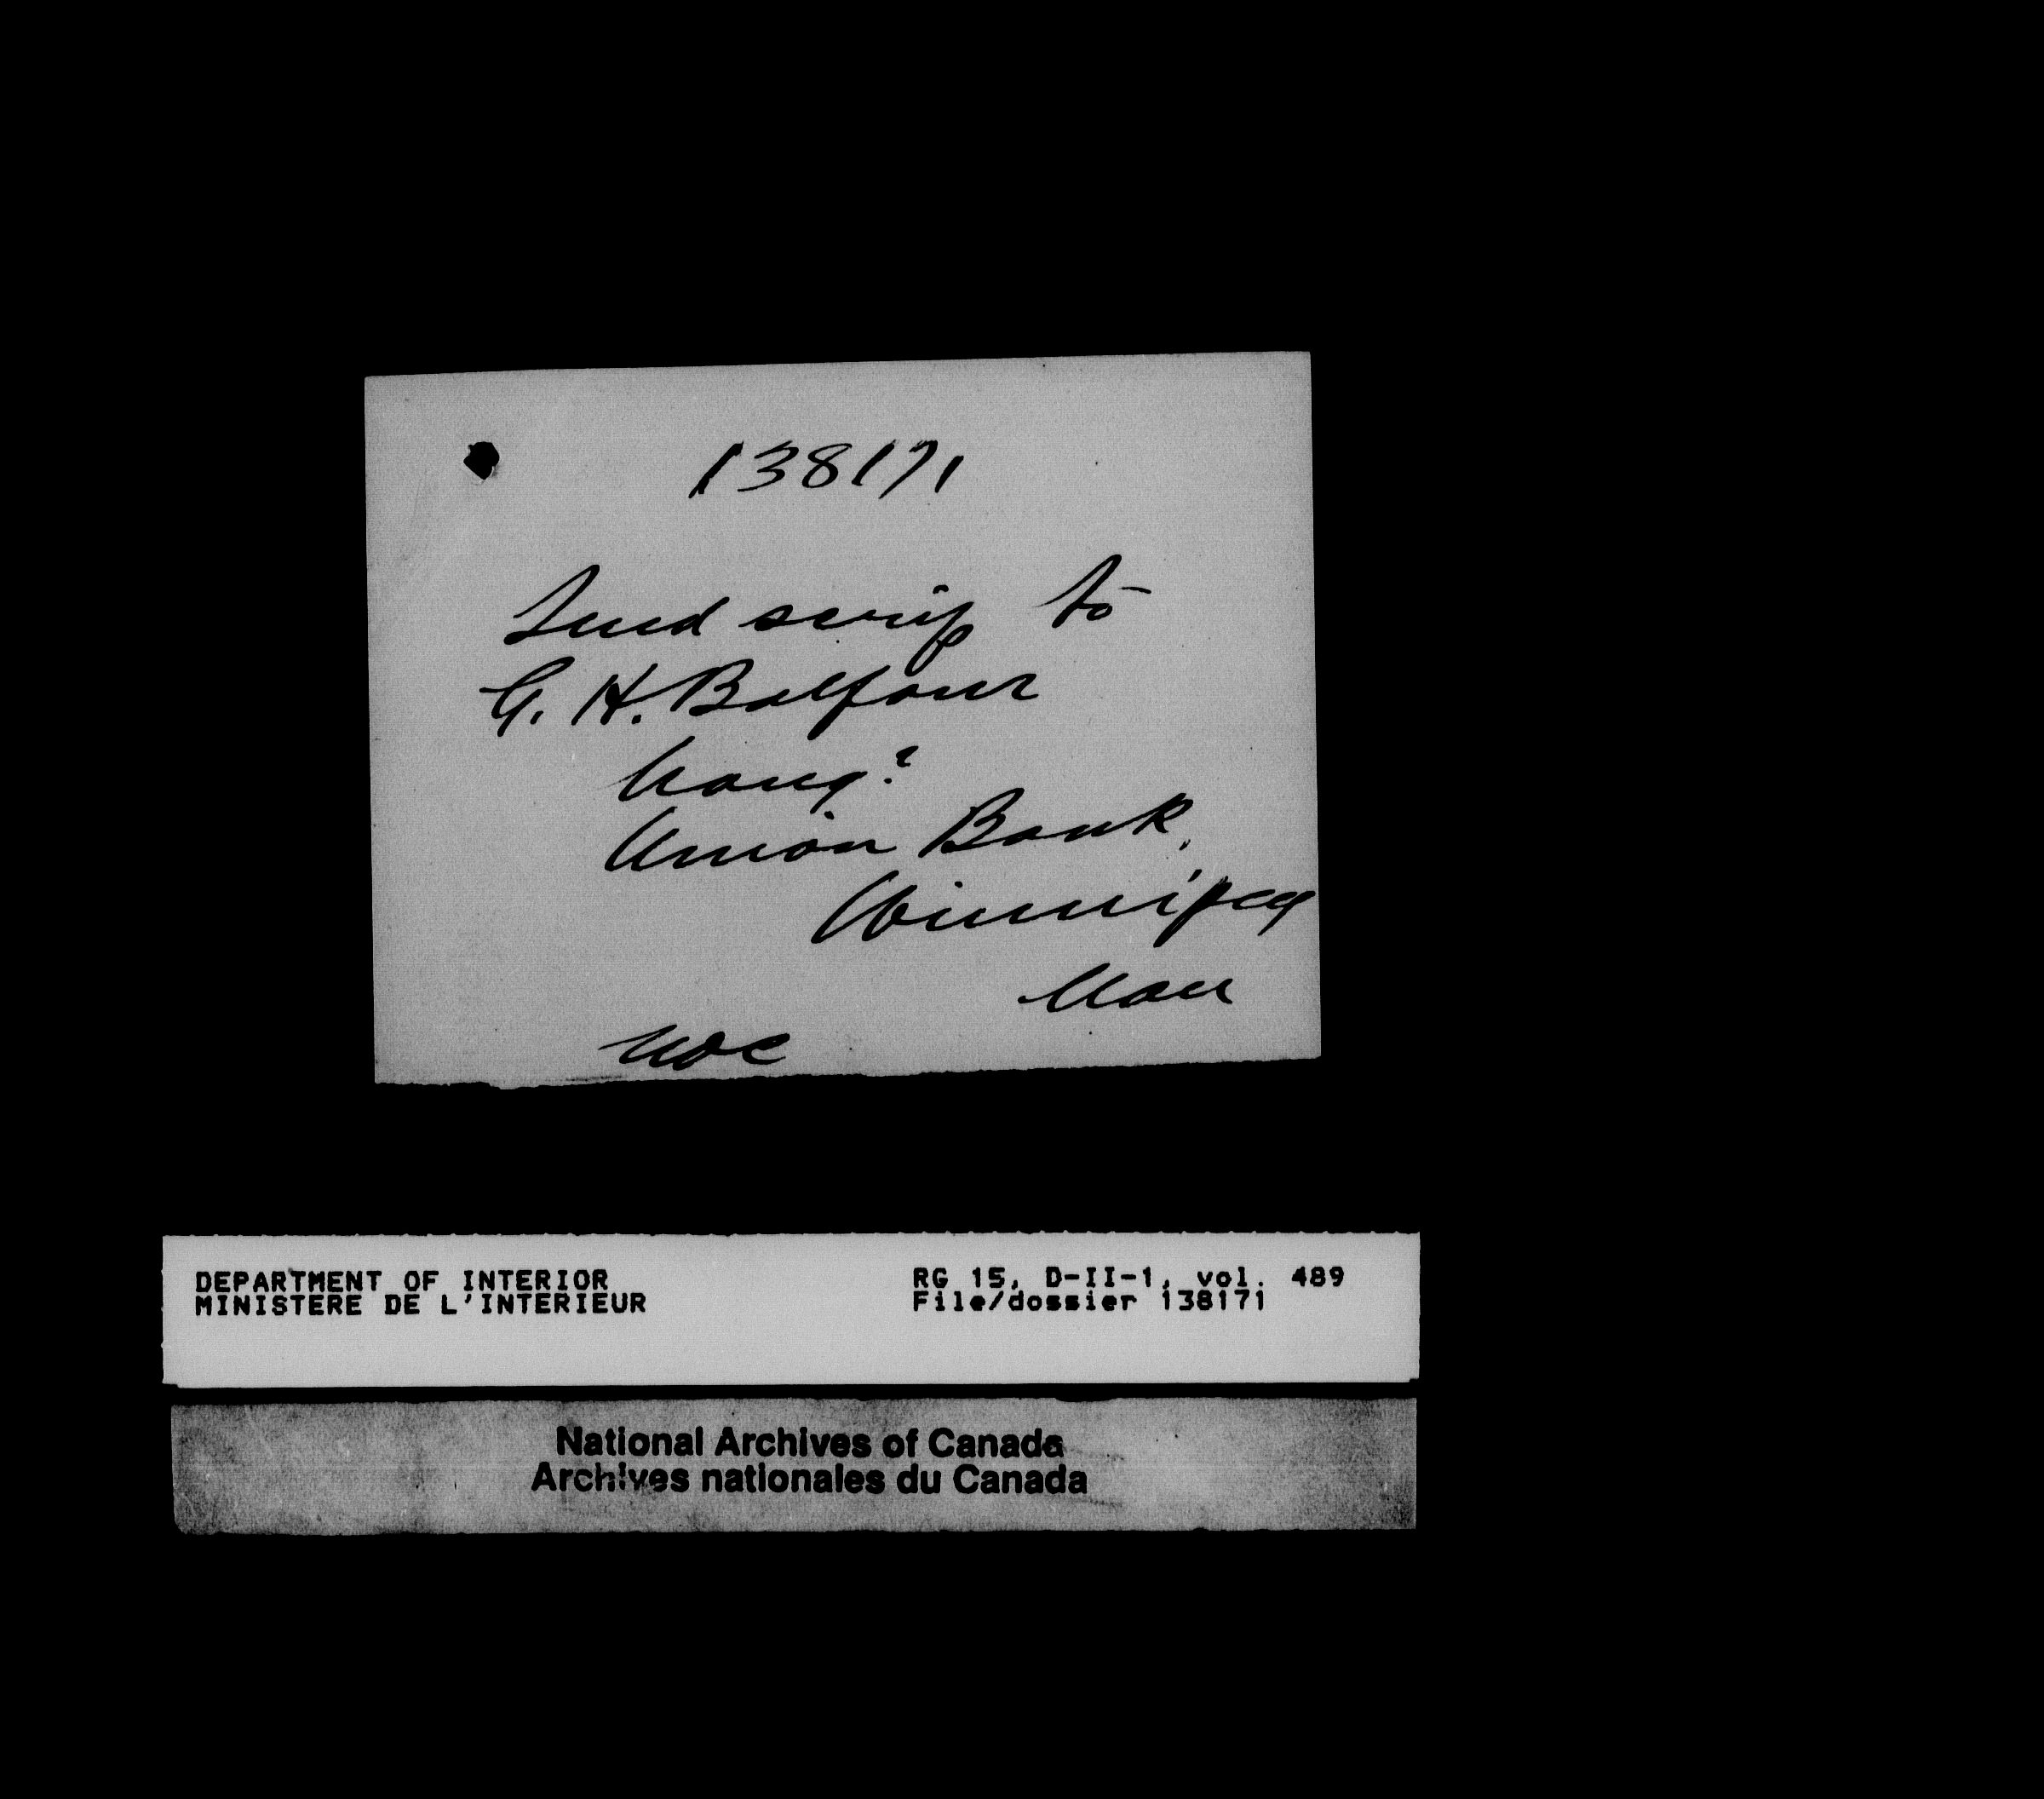 138171
Send scrip to
G. H. Balfour
Mang.r
Union Bank,
Winnipeg
Man
DEPARTMENT OF INTERIOR
MINISTERE DE L'INTERIEUR
RG 15, D-II-1, vol. 489
File/dossier 138171
National Archives of Canada
Archives nationales du Canada